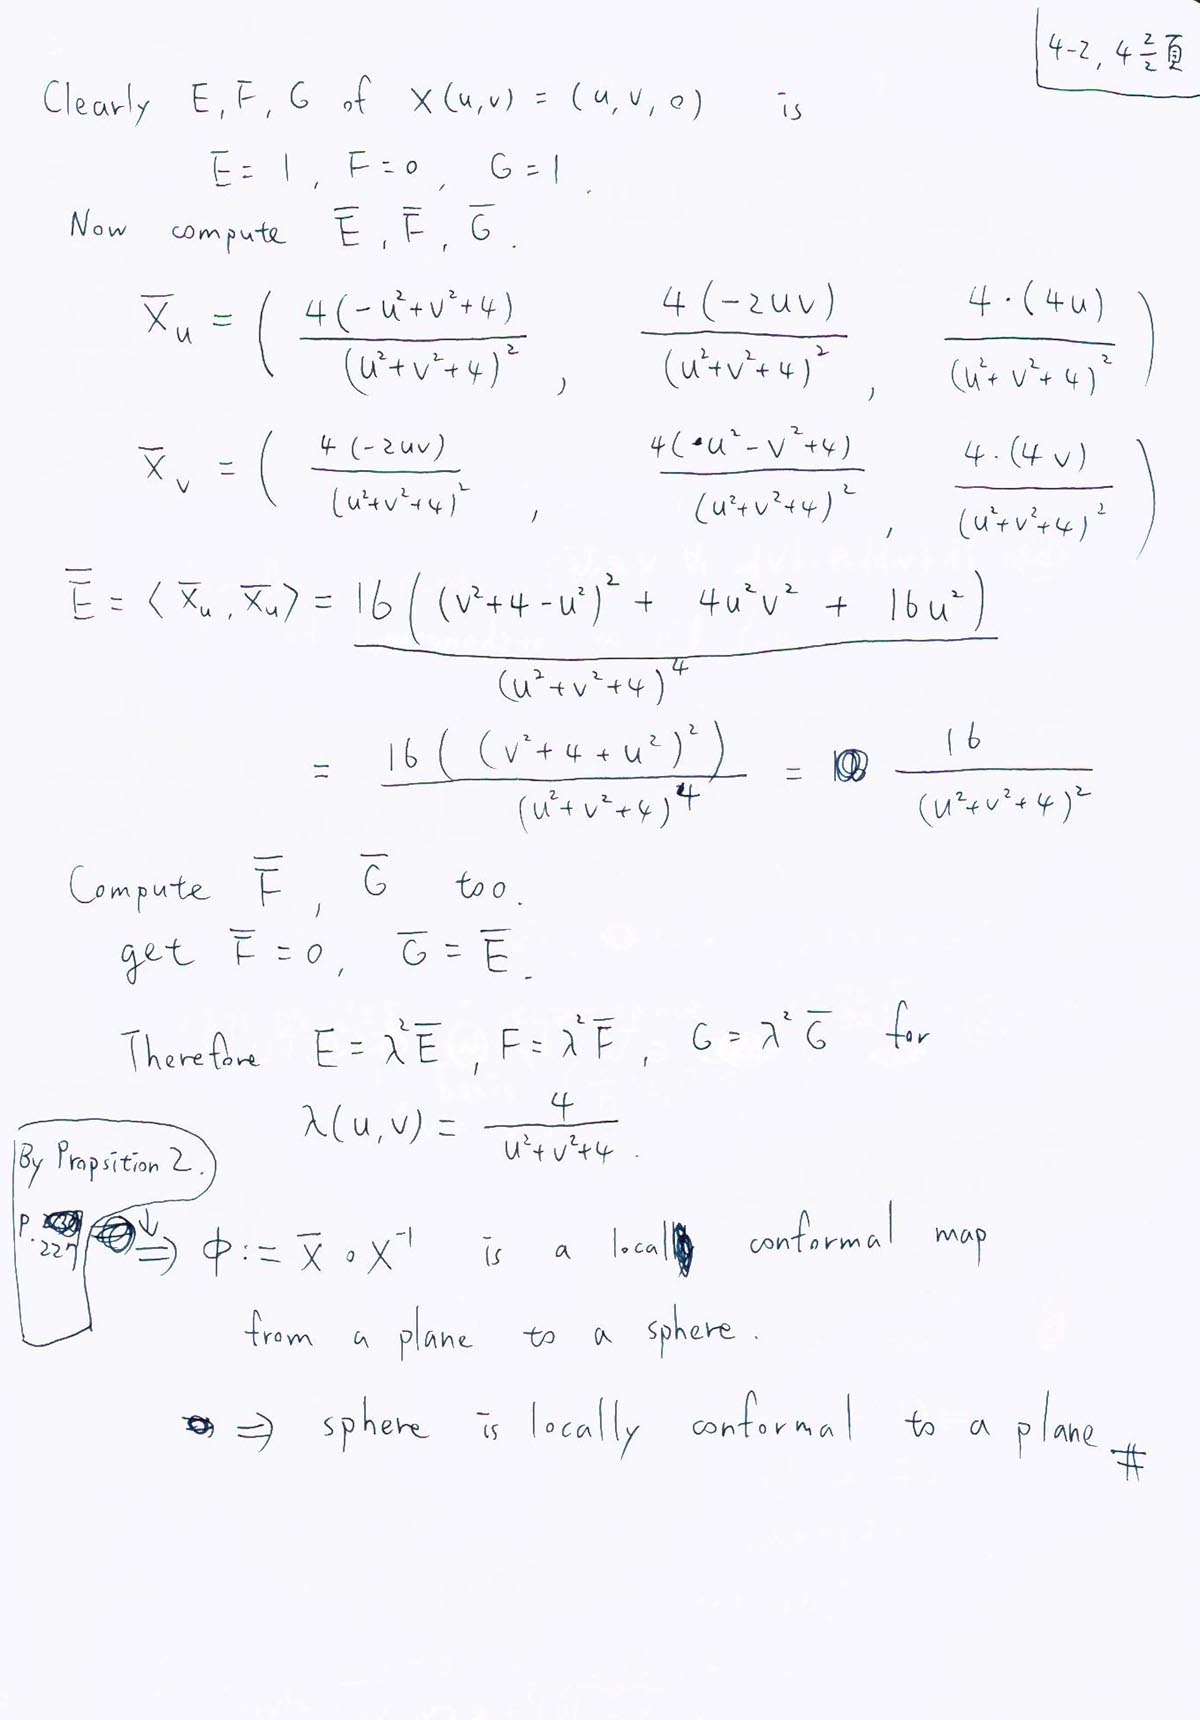 4-2, 4 2/2 頁
Clearly E, F, G of X(u,v) = (u, v, 0) is
E = 1, F = 0, G = 1.
Now compute E̅, F̅, G̅.
X̅ᵤ = ( 4(-u²+v²+4) / (u²+v²+4)², 4(-2uv) / (u²+v²+4)², 4·(4u) / (u²+v²+4)² )
X̅ᵥ = ( 4(-2uv) / (u²+v²+4)², 4(u²-v²+4) / (u²+v²+4)², 4·(4v) / (u²+v²+4)² )
E̅ = ⟨X̅ᵤ, X̅ᵤ⟩ = 16((v²+4-u²)² + 4u²v² + 16u²) / (u²+v²+4)⁴
= 16((v²+4+u²)²) / (u²+v²+4)⁴ = 16 / (u²+v²+4)²
Compute F̅, G̅ too.
get F̅ = 0, G̅ = E̅.
Therefore E = λ²E̅, F = λ²F̅, G = λ²G̅ for
λ(u,v) = 4 / u²+v²+4.
By Propsition 2.
P. 227
⇒ φ := X̅ ∘ X⁻¹ is a local conformal map
from a plane to a sphere.
⇒ sphere is locally conformal to a plane #